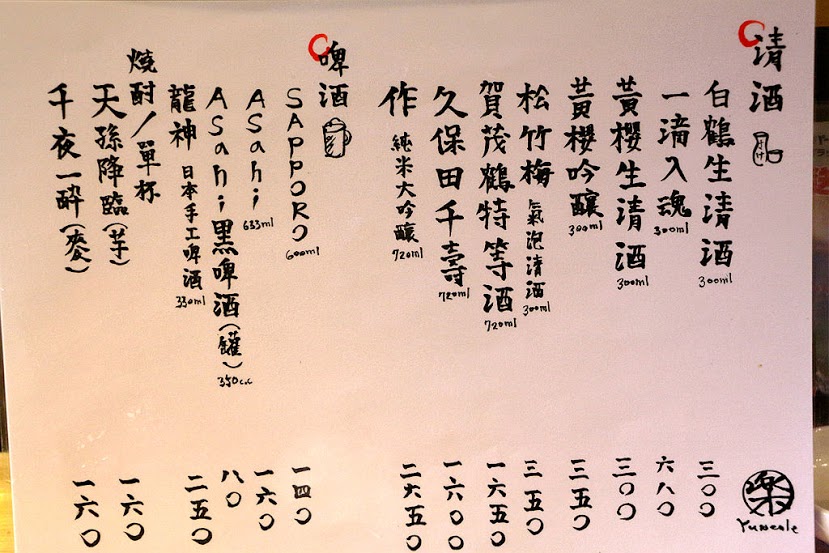 清酒
白鶴生清酒 300ml 三〇〇
一滴入魂 300ml 六八〇
黃櫻生清酒 300ml 三〇〇
黃櫻吟釀 300ml 三五〇
松竹梅 氣泡清酒 300ml 三五〇
賀茂鶴特等酒 720ml 一六五〇
久保田千壽 720ml 一六〇〇
作 純米大吟釀 720ml 二六五〇
啤酒
SAPPORO 600ml 一四〇
ASahi 633ml 一六〇
ASahi黑啤酒(罐) 350c.c 八〇
龍神 日本手工啤酒 330ml 二五〇
燒酎/單杯
天孫降臨(芋) 一六〇
千夜一醉(麥) 一六〇
楽